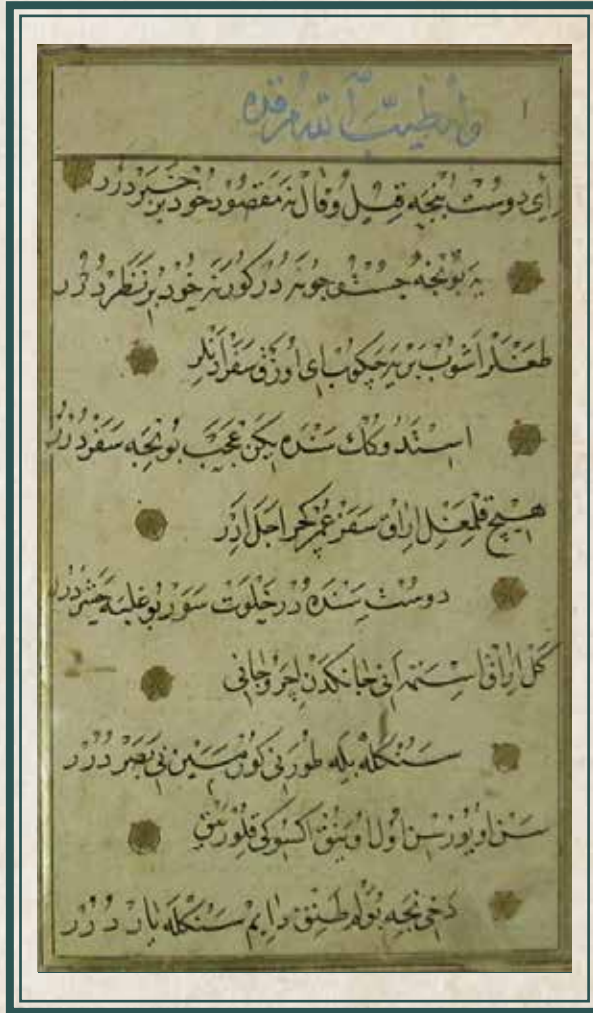 ای دوست بنجه قیل و قال نه مقصود خود بر خبردرر
یه بونجه جست و جو نه در کورنه خود بر نظردرر
طعنلر اشوب بریه چکوب ای اوزق سفر ادنلر
استدوکک سنده یکن عجب بونجه سفر درر
هیچ قلمغل اراق سفر عمر کجر اجل ادر
دوست سنده در خلوت سور بو غلبه حشردرر
کل اراق استمه انی جانکدن اجرو جانی
سنکله بیله طورنی کورمسین نی بصر درر
سن اویورسن اول اویانق کسوکی قلور
دخی نجه بوله طنق دایم سنکله یار درر